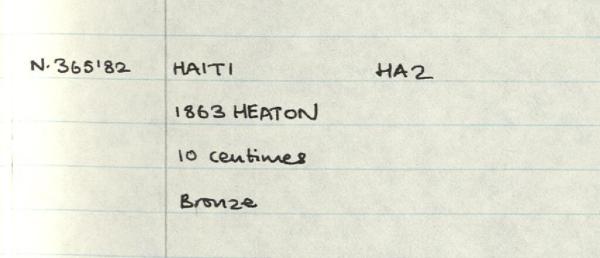 N.365'82 HAITI HA2
1863 HEATON
10 centimes
Bronze